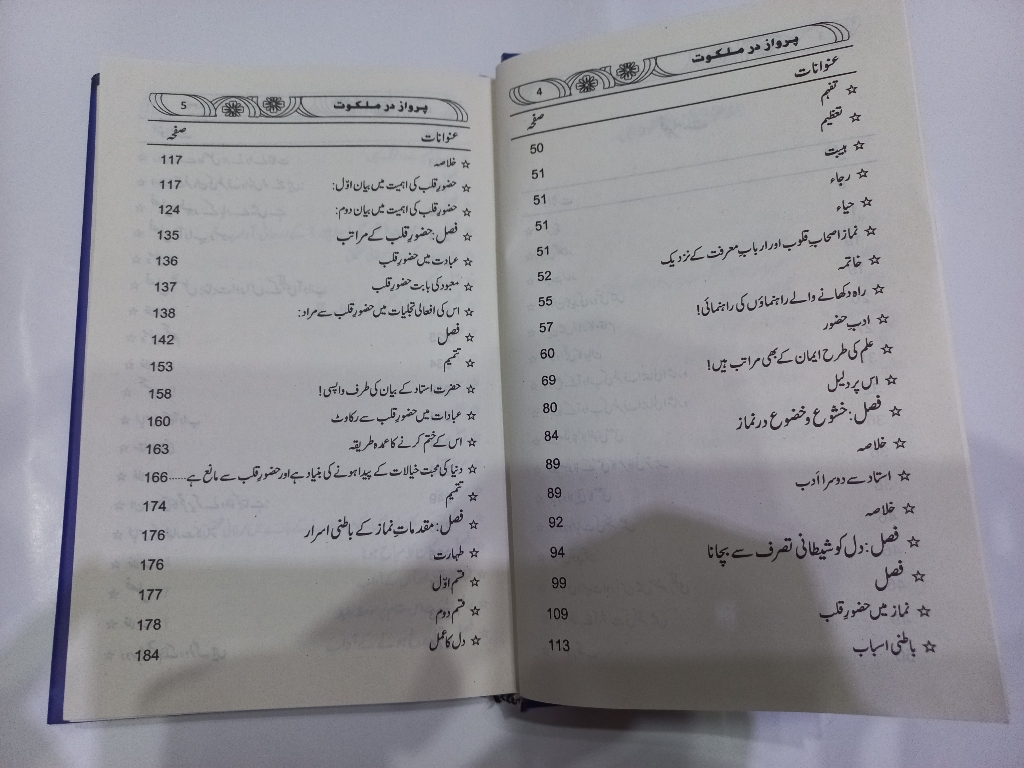 پرواز در ملکوت 4
عنوانات صفحہ
☆ تفہم 50
☆ تعظیم 51
☆ ہیبت 51
☆ رجاء 51
☆ حیاء 51
☆ نماز اصحاب قلوب اور ارباب معرفت کے نزدیک 52
☆ خاتمہ 55
☆ راہ دکھانے والے راہنماؤں کی راہنمائی! 57
☆ ادب حضور 60
☆ علم کی طرح ایمان کے بھی مراتب ہیں! 69
☆ اس پر دلیل 80
☆ فصل: خشوع و خضوع در نماز 84
☆ خلاصہ 89
☆ استاد سے دوسرا اَدب 89
☆ خلاصہ 92
☆ فصل: دل کو شیطانی تصرف سے بچانا 94
☆ فصل 99
☆ نماز میں حضورِ قلب 109
☆ باطنی اسباب 113
پرواز در ملکوت 5
عنوانات صفحہ
☆ خلاصہ 117
☆ حضورِ قلب کی اہمیت میں بیان اوّل: 117
☆ حضورِ قلب کی اہمیت میں بیان دوم: 124
☆ فصل: حضورِ قلب کے مراتب 135
☆ عبادت میں حضورِ قلب 136
☆ معبود کی بابت حضورِ قلب 137
☆ اس کی افعالی تجلیات میں حضورِ قلب سے مراد: 138
☆ فصل 142
☆ تتمیم 153
☆ حضرت استاد کے بیان کی طرف واپسی! 158
☆ عبادات میں حضورِ قلب سے رکاوٹ 160
☆ اس کے ختم کرنے کا عمدہ طریقہ 163
☆ دنیا کی محبت خیالات کے پیدا ہونے کی بنیاد ہے اور حضورِ قلب سے مانع ہے.....166
☆ تتمیم 174
☆ فصل: مقدماتِ نماز کے باطنی اسرار 176
☆ طہارت 176
☆ قسم اوّل 177
☆ قسم دوم: 178
☆ دل کا عمل 184